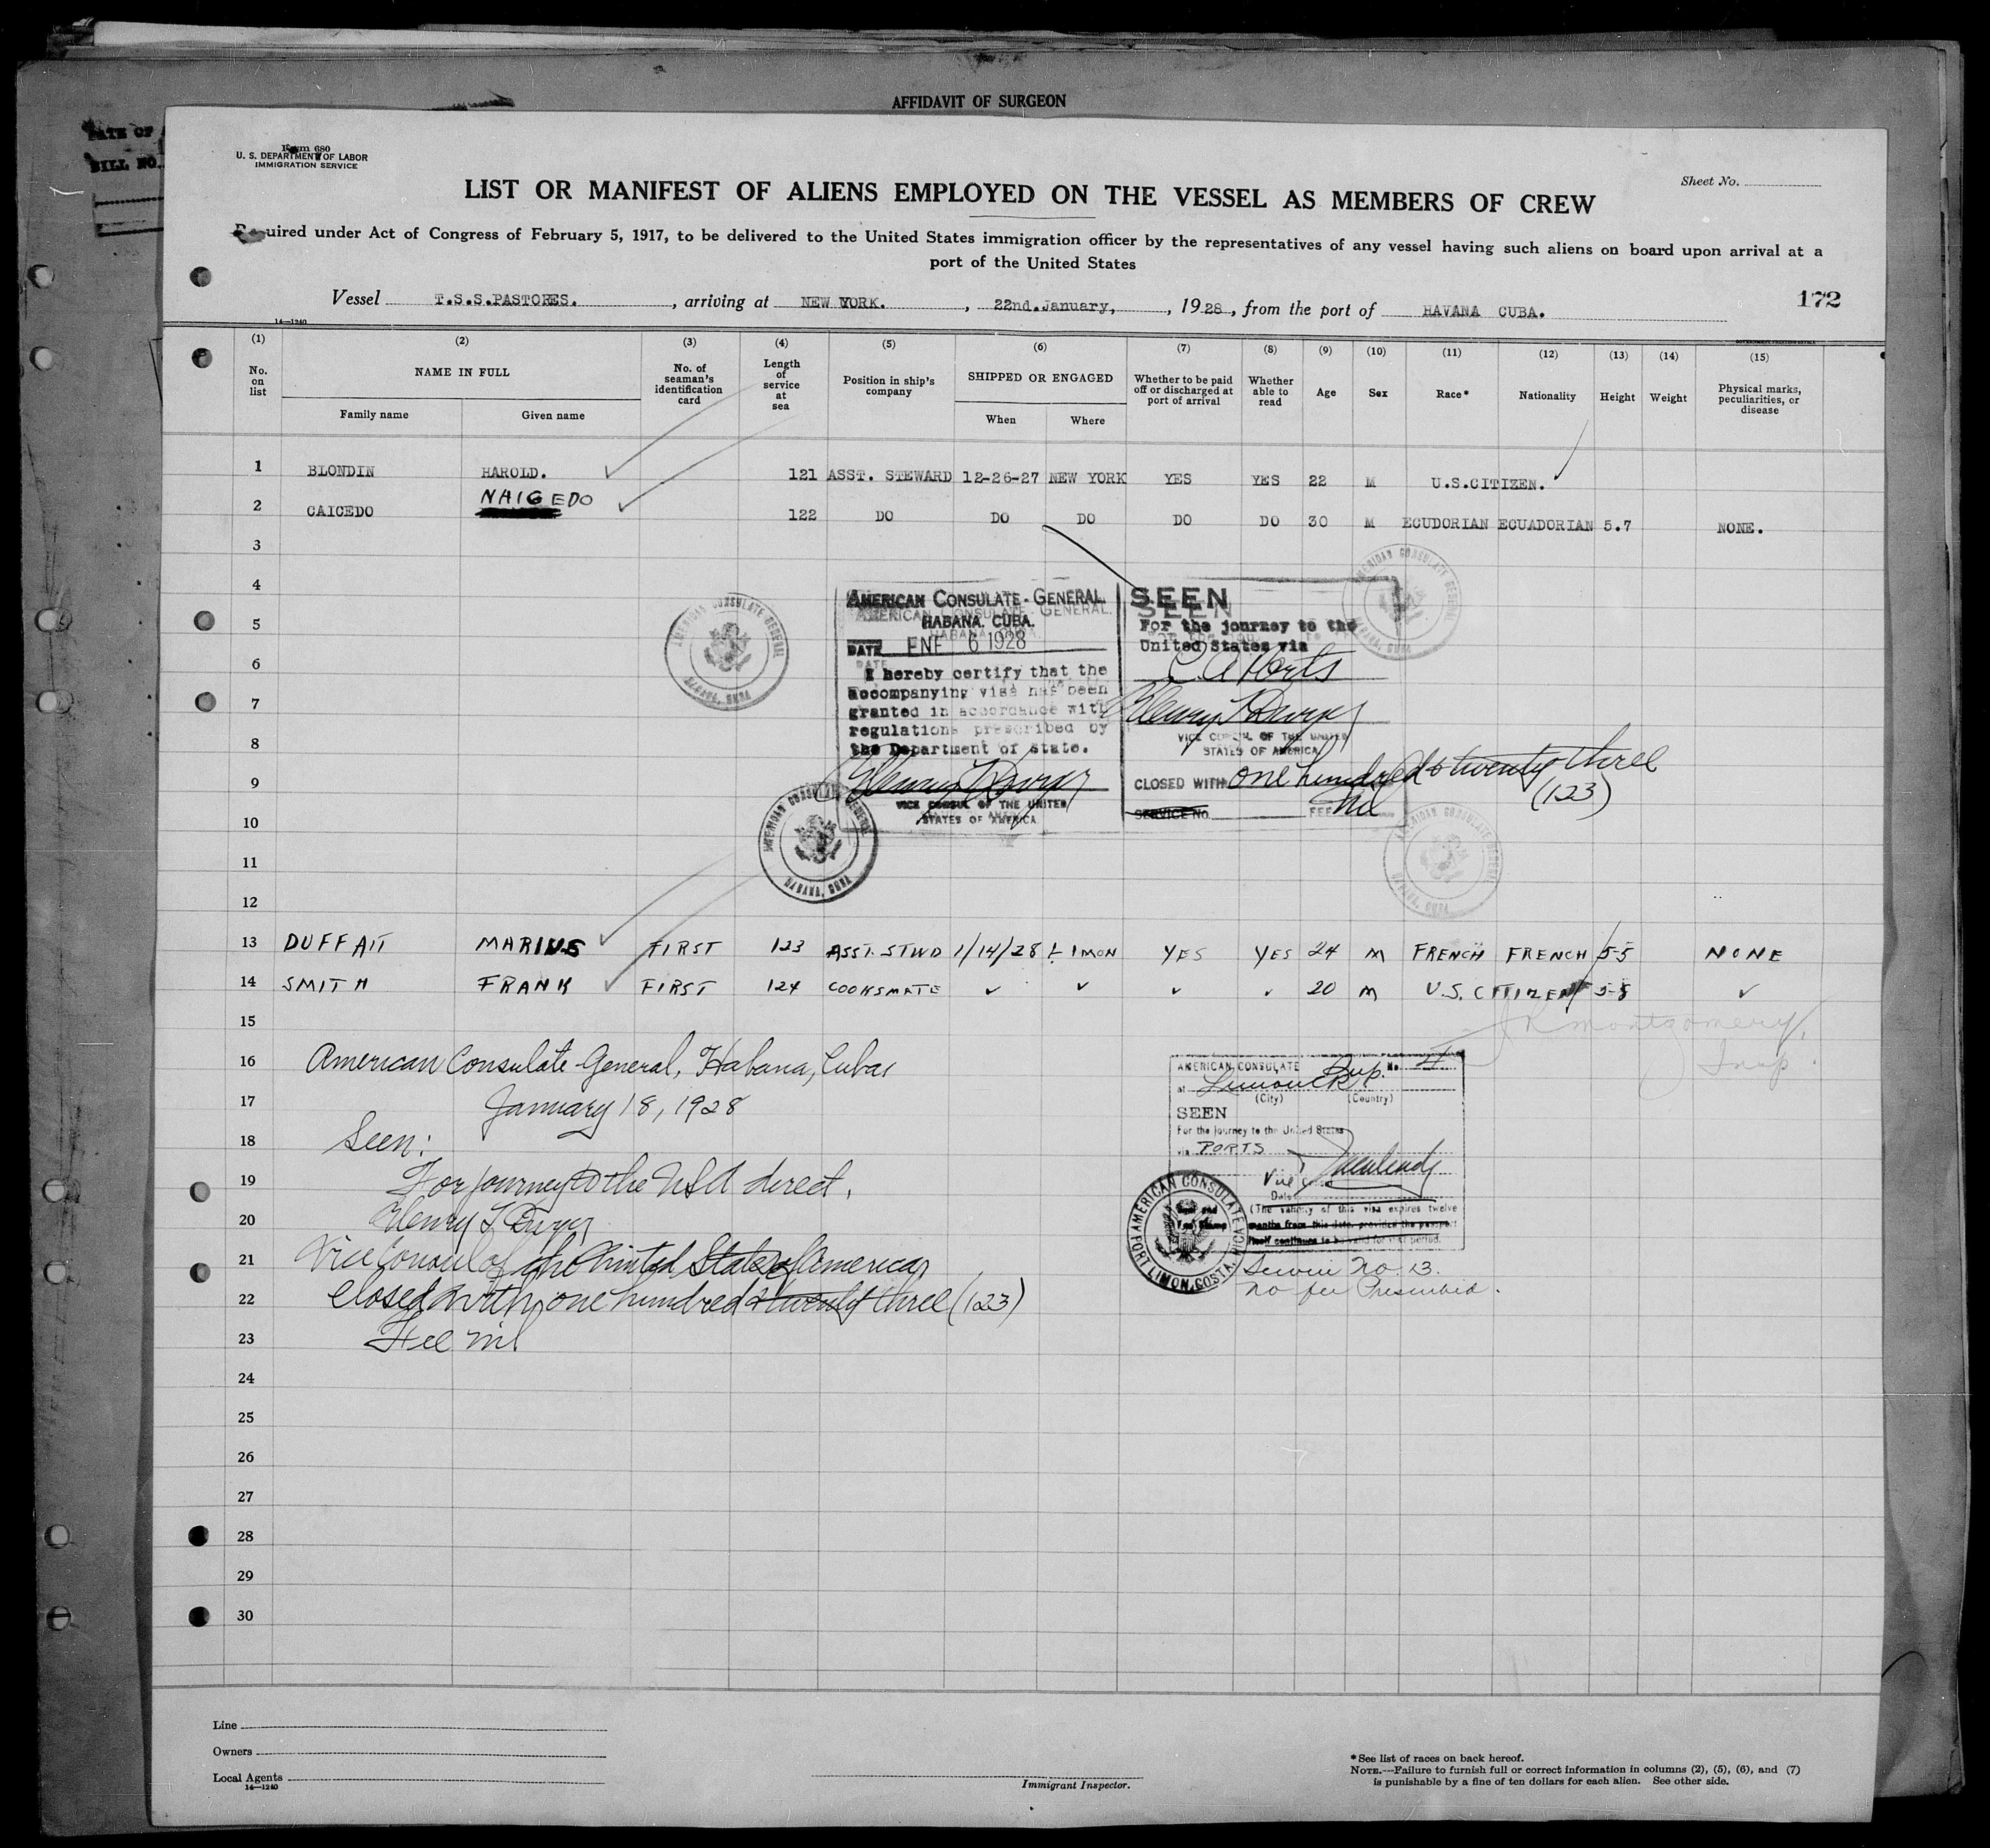 AFFIDAVIT OF SURGEON
BILL NO.
Form 680
U. S. DEPARTMENT OF LABOR
IMMIGRATION SERVICE
Sheet No.
LIST OR MANIFEST OF ALIENS EMPLOYED ON THE VESSEL AS MEMBERS OF CREW
Required under Act of Congress of February 5, 1917, to be delivered to the United States immigration officer by the representatives of any vessel having such aliens on board upon arrival at a
port of the United States
Vessel T.S.S.PASTORES. , arriving at NEW YORK. , 22nd.January, , 1928, from the port of HAVANA CUBA.
172
14—1240
(1) (2) (3) (4) (5) (6) (7) (8) (9) (10) (11) (12) (13) (14) (15)
No. on list
NAME IN FULL
Family name Given name
No. of seaman's identification card
Length of service at sea
Position in ship's company
SHIPPED OR ENGAGED
When Where
Whether to be paid off or discharged at port of arrival
Whether able to read
Age Sex Race* Nationality Height Weight
Physical marks, peculiarities, or disease
1 BLONDIN HAROLD. 121 ASST. STEWARD 12-26-27 NEW YORK YES YES 22 M U.S.CITIZEN.
2 CAICEDO NAIGEDO 122 DO DO DO DO DO 30 M ECUDORIAN ECUADORIAN 5.7 NONE.
3
4
5
6
7
8
9
10
11
12
AMERICAN CONSULATE-GENERAL.
HABANA. CUBA.
DATE ENE 6 1928
I hereby certify that the
accompanying visa has been
granted in accordance with
regulations prescribed by
the Department of State.
VICE CONSUL OF THE UNITED
STATES OF AMERICA
SEEN
For the journey to the
United States via
VICE CONSUL OF THE UNITED
STATES OF AMERICA.
CLOSED WITH one hundred & twenty three
(123)
SERVICE NO. FEE Nil
AMERICAN CONSULATE GENERAL
HABANA, CUBA
AMERICAN CONSULATE GENERAL
HABANA, CUBA
AMERICAN CONSULATE GENERAL
HABANA, CUBA
AMERICAN CONSULATE GENERAL
HABANA, CUBA
13 DUFFAIT MARIUS FIRST 123 ASST. STWD 1/14/28 YES YES 24 M FRENCH FRENCH 5-5 NONE
14 SMITH FRANK FIRST 124 COOKSMATE ✓ ✓ ✓ ✓ 20 M U.S. CITIZEN 5-8 ✓
15 Montgomery,
Insp.
16 American Consulate-General, Habana, Cuba
17 January 18, 1928
18 Seen:
19 For journey to the USA direct.
20
21 Vice Consul of the United States of America
22 Closed with one hundred & twenty three (123)
23 Fee nil
24
25
26
27
28
29
30
AMERICAN CONSULATE No
at
(City) (Country)
SEEN
For the journey to the United States
via PORTS
Vice
Date
(The validity of this visa expires twelve
months from this date, provided the passport
itself continues to be valid for that period.
AMERICAN CONSULATE
PORT LIMON, COSTA RICA
Service No. 13.
No fee Prescribed.
Line
Owners
Local Agents
14—1240
Immigrant Inspector.
*See list of races on back hereof.
NOTE.—Failure to furnish full or correct information in columns (2), (5), (6), and (7)
is punishable by a fine of ten dollars for each alien. See other side.